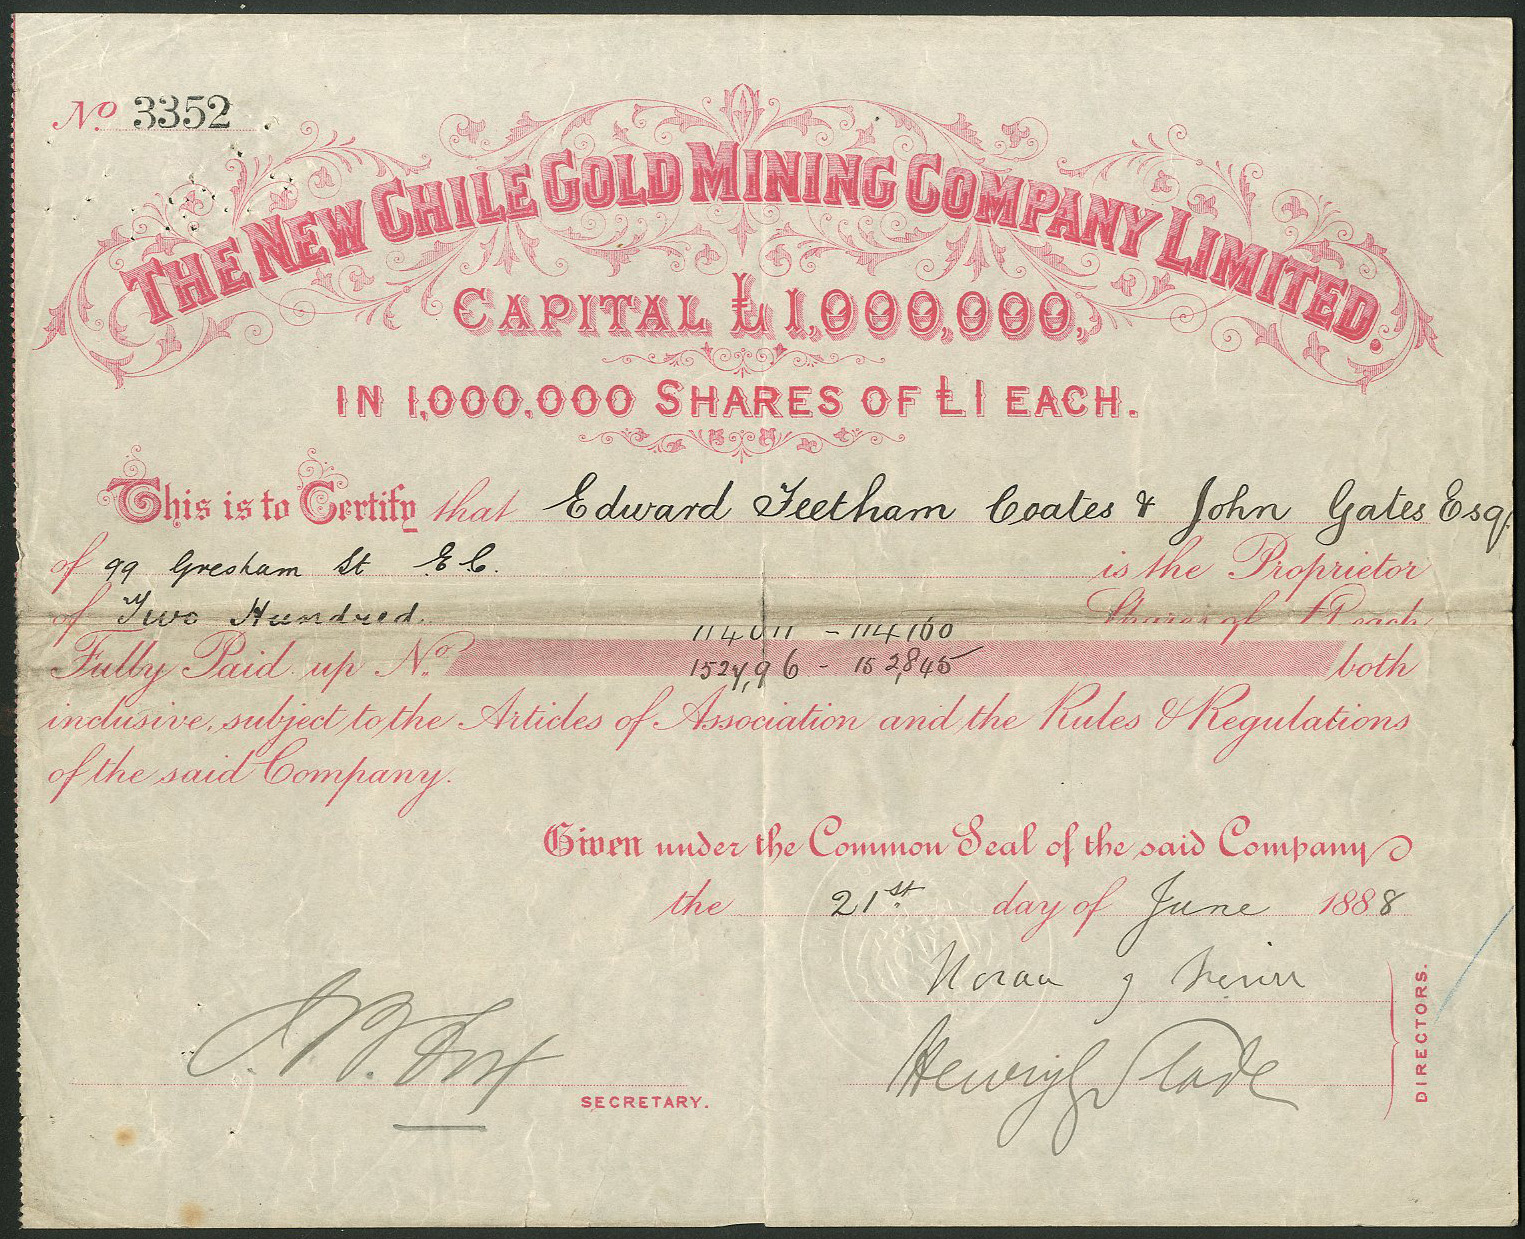 No. 3352
THE NEW CHILE GOLD MINING COMPANY LIMITED.
CAPITAL £1,000,000,
IN 1,000,000 SHARES OF £1 EACH.
This is to Certify that Edward Feetham Coates & John Gates Esq
of 99 Gresham St E.C. is the Proprietor
of Two Hundred Shares of £1 each
114011 - 114160
Fully Paid up No. 152796 - 152845 both
inclusive, subject to the Articles of Association and the Rules & Regulations
of the said Company.
Given under the Common Seal of the said Company
the 21st day of June 1888
Henry Slade
DIRECTORS.
SECRETARY.